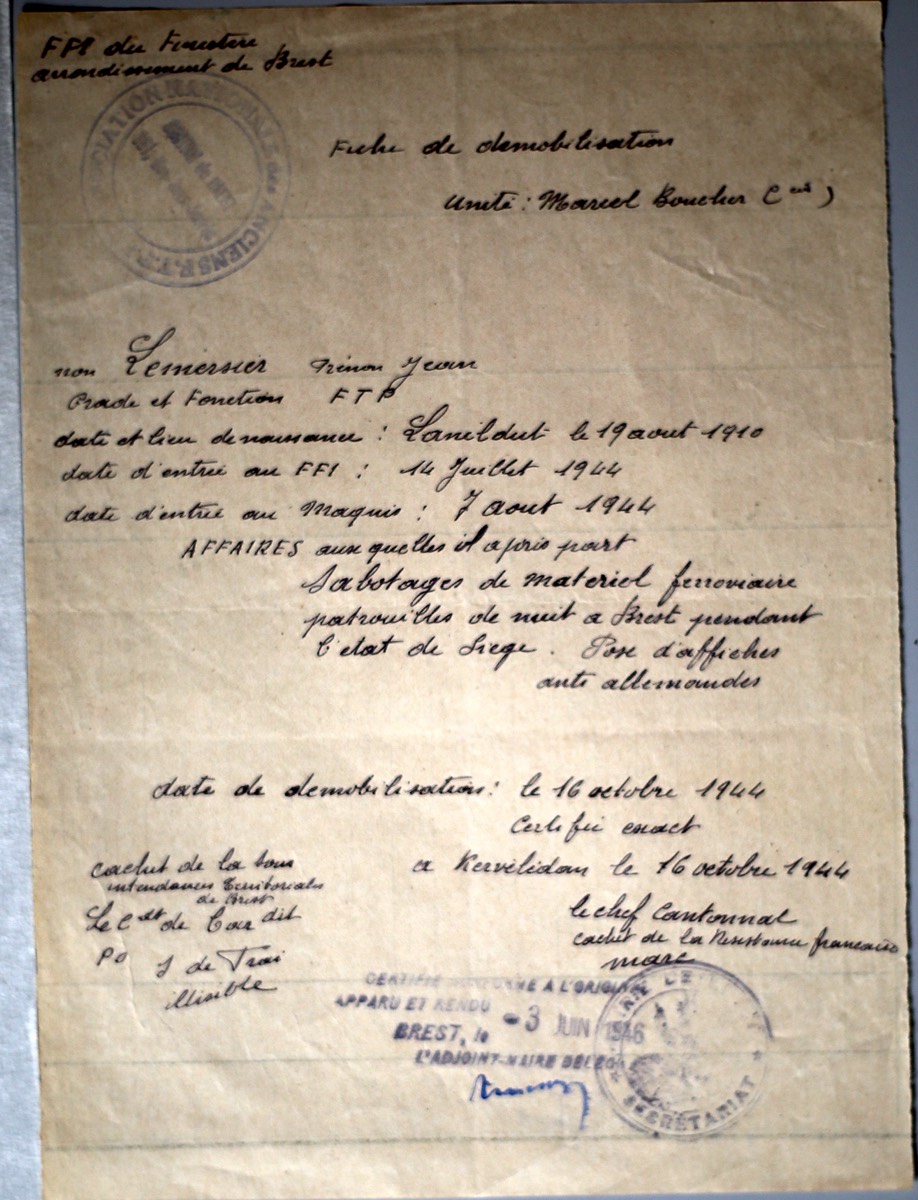 FFI du Finistère
arrondissement de Brest
ASSOCIATION NATIONALE des ANCIENS F.T.P.
Fiche de demobilisation
Unité : Marcel Boucher (Cie)
nom Lemersier Prénom Jean
Grade et Fonction FTP
date et lieu de naissance : Lanildut le 19 aout 1910
date d'entrée au FFI : 14 Juillet 1944
date d'entrée au Maquis : 7 aout 1944
AFFAIRES aux quelles il a pris part
Sabotages de materiel ferroviaire
patrouilles de nuit a Brest pendant
l'etat de Siege. Pose d'affiches
anti allemandes
date de demobilisation : le 16 octobre 1944
Certifié exact
a Kervélédan le 16 octobre 1944
cachet de la sous
intendances Territoriales
de Brest
le chef Cantonnal
Le Cdt de
cachet de la Resistance francaise
PO J de Trai
marc
illisible
CERTIFIÉ CONFORME A L'ORIGINAL
APPARU ET RENDU
BREST, le -3 JUIN 1946
L'ADJOINT-MAIRE DÉLÉGUÉ
MAIRIE DE BREST
SECRÉTARIAT